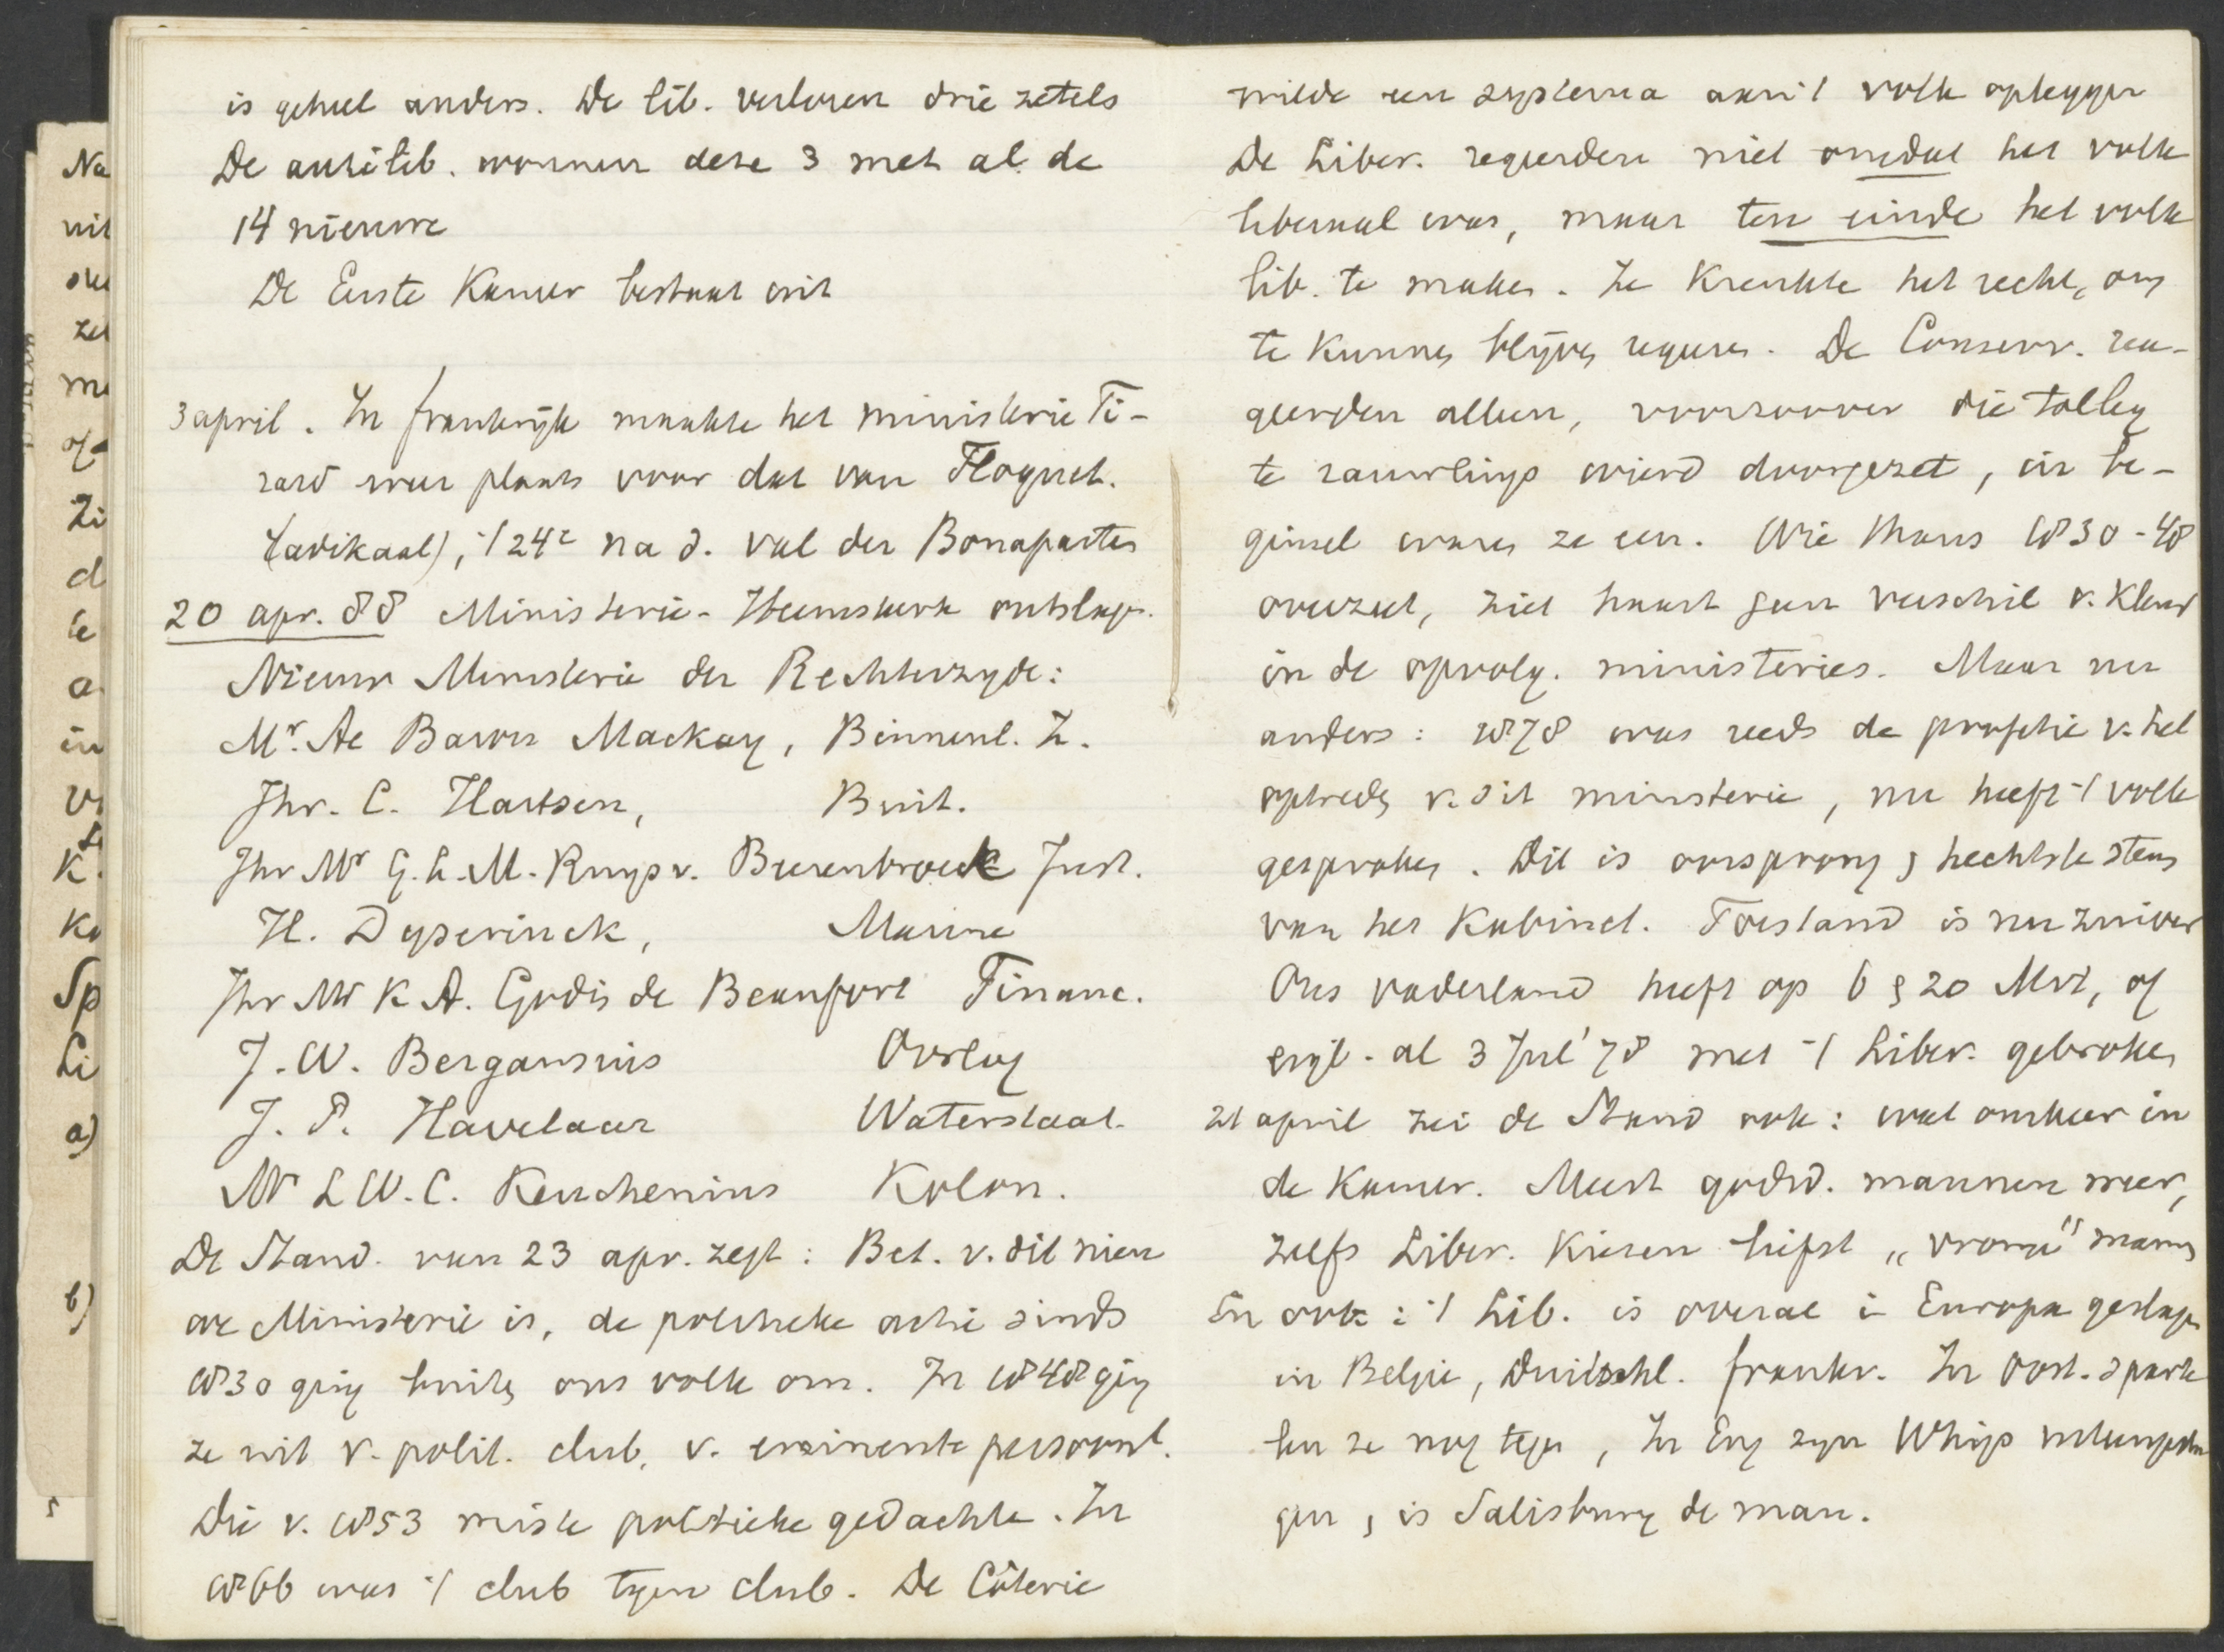 is geheel anders. De lib. verloren drie zetels
De antilib. wonnen deze 3 met al de
14 nieuwe
De Eerste Kamer bestaat uit
3 april. In frankrijk maakte het ministerie Ti-
rard weer plaats voor dat van Floquet.
(adikaal), 't 24e na d. val der Bonapartes
20 apr. 88 Ministerie-Heemskerk ontslagn.
Nieuw Ministerie der Rechterzyde:
Mr. Ae Baron Mackay, Binnenl. Z.
Jhr. C. Hartsen, Buit.
Jhr Mr G.L.M. Ruys v. Beerenbroeck Just.
H. Dyserinck, Marine
Jhr Mr K A. Godin de Beaufort Financ.
J.W. Bergansius Oorlog
J. P. Havelaar Waterstaat.
Mr L W.C. Keuchenius Kolon.
De Stand. van 23 apr. zegt: Bet. v. dit nieu
we Ministerie is, de politieke actie sinds
1830 ging buiten ons volk om. In 1848 ging
ze uit v. polit. club, v. eminente persoonl.
Die v. 1853 miste politieke gedachte. In
1866 was 't club tegen club. De Côterie
wilde een systema aan 't volk opleggen
De Liber. regeerden niet omdat het volk
liberaal was, maar ten einde het volk
lib. te maken. Ze krenkte het recht, om
te kunnen blijven regeren. De Conserv. rea-
geerden alleen, voorzoover die tolley
te rauwelings wierd doorgezet, in be-
ginsel waren ze een. Wie thans 1830-48
overziet, ziet haast geen verschil v. kleur
in de opvolg. ministeries. Maar nu
anders: 1878 was reeds de profetie v. het
optreden v. dit ministerie, nu heeft 't volk
gesproken. Dit is oorsprong & hechtste steun
van het Kabinet. Toestand is nu zuiver
Ons vaderland heeft op 6 & 20 Mrt, of
eigl. al 3 Jul '78 met 't Liber. gebroken
21 april zei de Stand ook: wat omkeer in
de Kamer. Meest godsd. mannen weer,
zelfs Liber. kiezen liefst „vrome" mannen
En ook: 't Lib. is overal i Europa geslagen
in Belgie, Duitschl. frankr. In Oost. spark
len ze nog tegen, In Eng zyn Whigs
gen, is Salisbury de man.